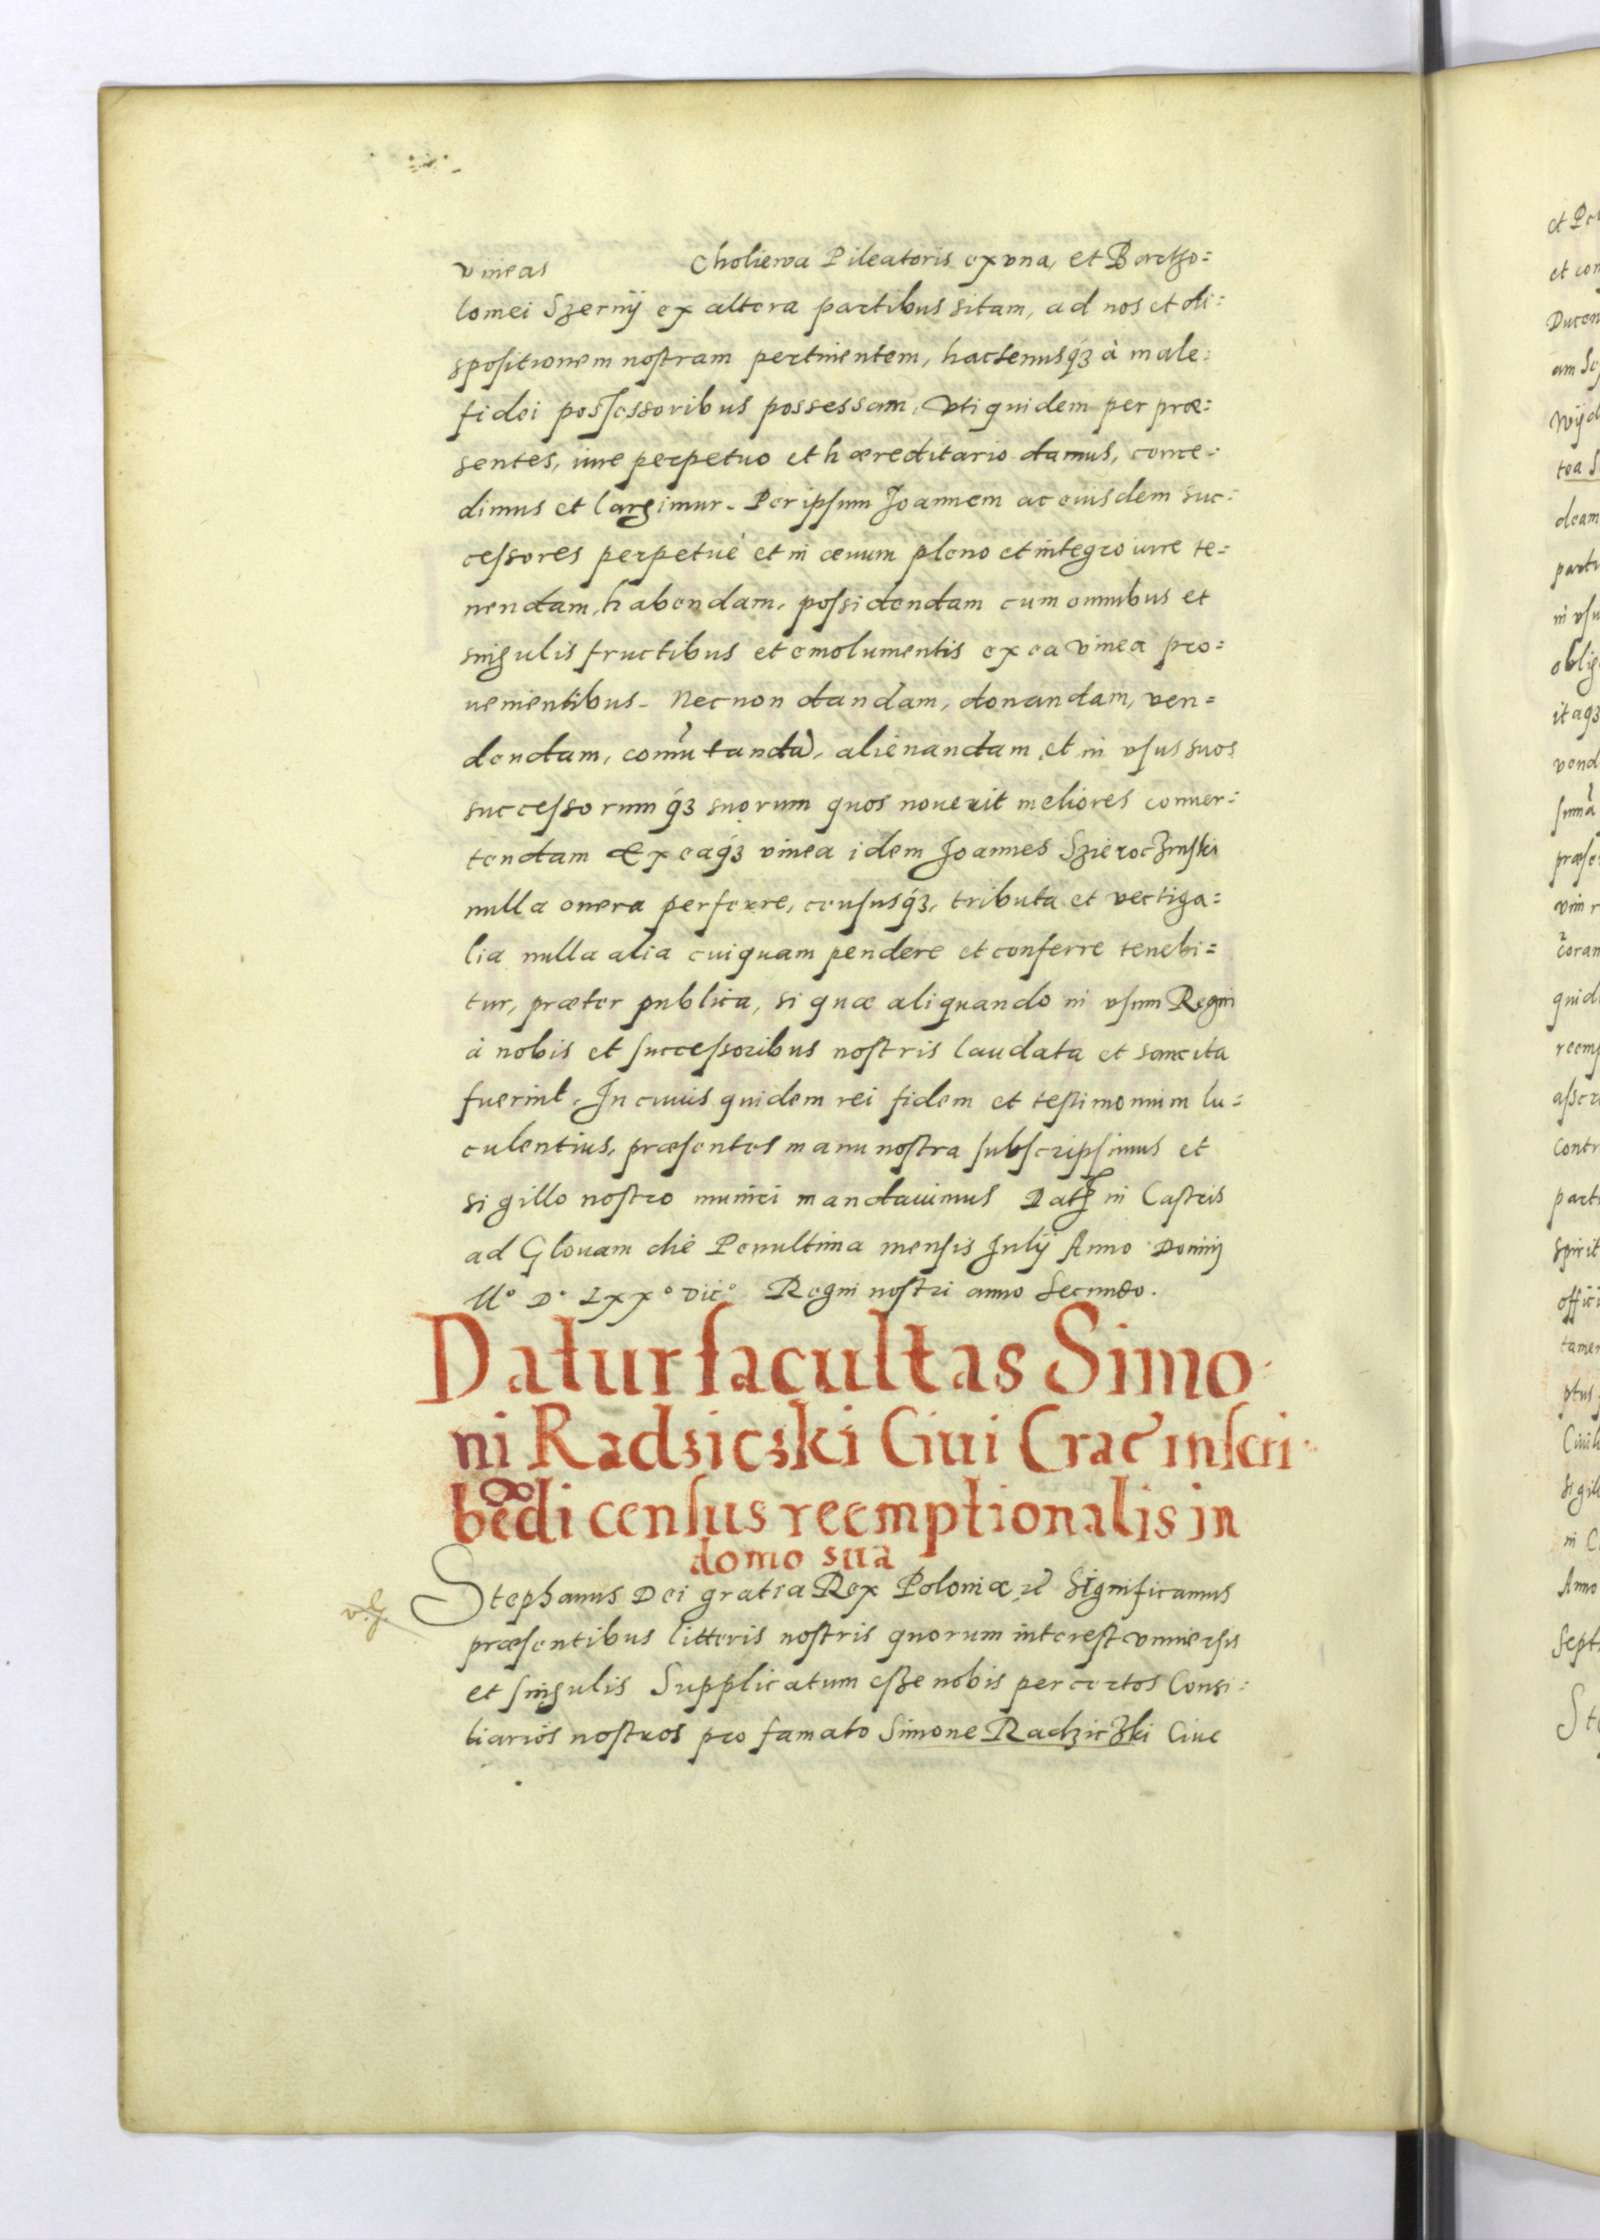 vineas Choliewa Pileatoris ex vna, et Bartho=
lomei Szernij ex altera partibus sitam, ad nos et di=
spositionem nostram pertinentem, hactenusq́ꝫ à male=
fidei possessoribus possessam, Vti quidem per præ=
sentes, iure perpetuo et hæreditario damus, conce=
dimus et largimur. Per ipsum Joannem ac eiusdem suc=
cessores perpetuè et in æuum pleno et integro iure te=
nendam, habendam, possidendam cum omnibus et
singulis fructibus et emolumentis ex ea vinea pro=
uenientibus. Necnon dandam, donandam, ven=
dendam, com̃utandã, alienandam et in vsus suos
successorumq́ꝫ suorum quos nouerit meliores conuer=
tendam Ex eaq́ꝫ vinea idem Joannes
nulla onera perferre, censusq́ꝫ, tributa et vectiga=
lia nulla alia cuiquam pendere et conferre tenebi=
tur, præter publica, si quæ aliquando in vsum Regni
à nobis et successoribus nostris laudata et sancita
fuerint. In cuius quidem rei fidem et testimonium lu=
culentius, præsentes manu nostra subscripsimus et
sigillo nostro muniri mandauimus Datꝫ in Castris
ad Glouam die Penultima mensis Julij Anno Domini
Mº Dº LXXº Viiº Regni nostri anno Secundo.
Datur facultas Simo=
ni Radsicski Ciui Crac̃ inscri=
bẽdi census reemptionalis in
domo sua
Stephanus Dei gratia Rex Poloniæ ꝛc̃ Significamus
præsentibus litteris nostris quorum interest vniuersis
et singulis Supplicatum esse nobis per certos Consi=
liarios nostros pro famato Simone Radzicżki Ciue